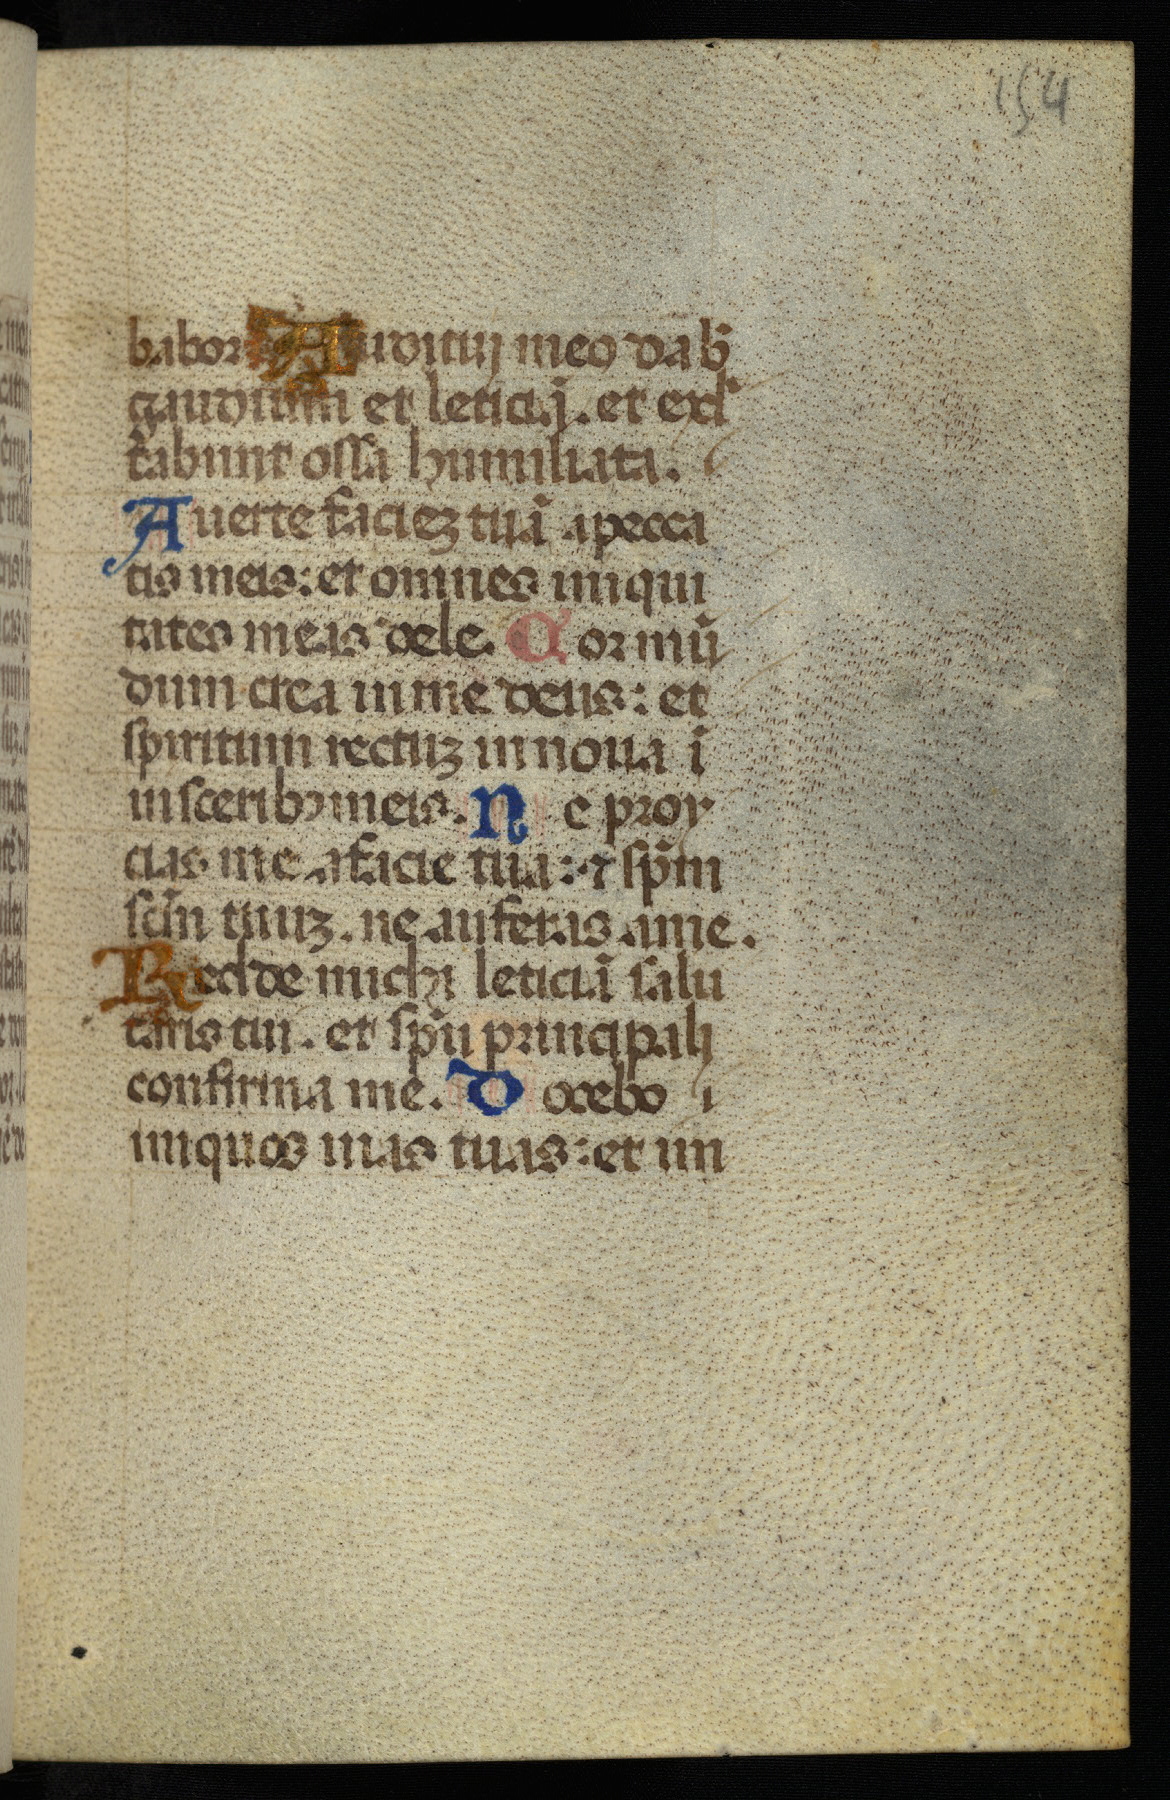 154
babor Auditui meo dab̃
gaudium et leticiã. et exl̃
tabunt ossa humiliata.
Auerte faciez tuã a pecca
tis meis: et omnes iniqui
tates meas dele. Cor mũ
dum crea in me deus: et
spiritum rectuz innoua ĩ
uisceribꝫ meis. Ne proy
cias me a facie tua: ⁊ sp̃m
sc̃m tuuz. ne auferas a me.
Redde michi leticiã salu
taris tui. et spũ principali
confirma me. Docebo i
iniquos uias tuas: et im